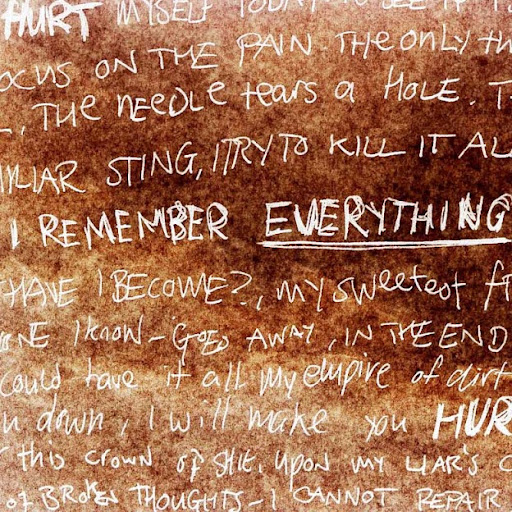 HURT MYSELF TODAY TO SEE IF
OCUS ON THE PAIN. THE ONLY TH
L, THE NEEDLE tears a HOLE. T
MILIAR STING, I TRY TO KILL IT AL
I REMEMBER EVERYTHING
HAVE I BECOME?, MY SWEETEST FR
ONE I KNOW - GOES AWAY, IN THE END
could have it all My empire of dirt
u down, I will make you HUR
this crown of shit, upon my LIAR'S C
of BROKEN THOUGHTS - I CANNOT REPAIR